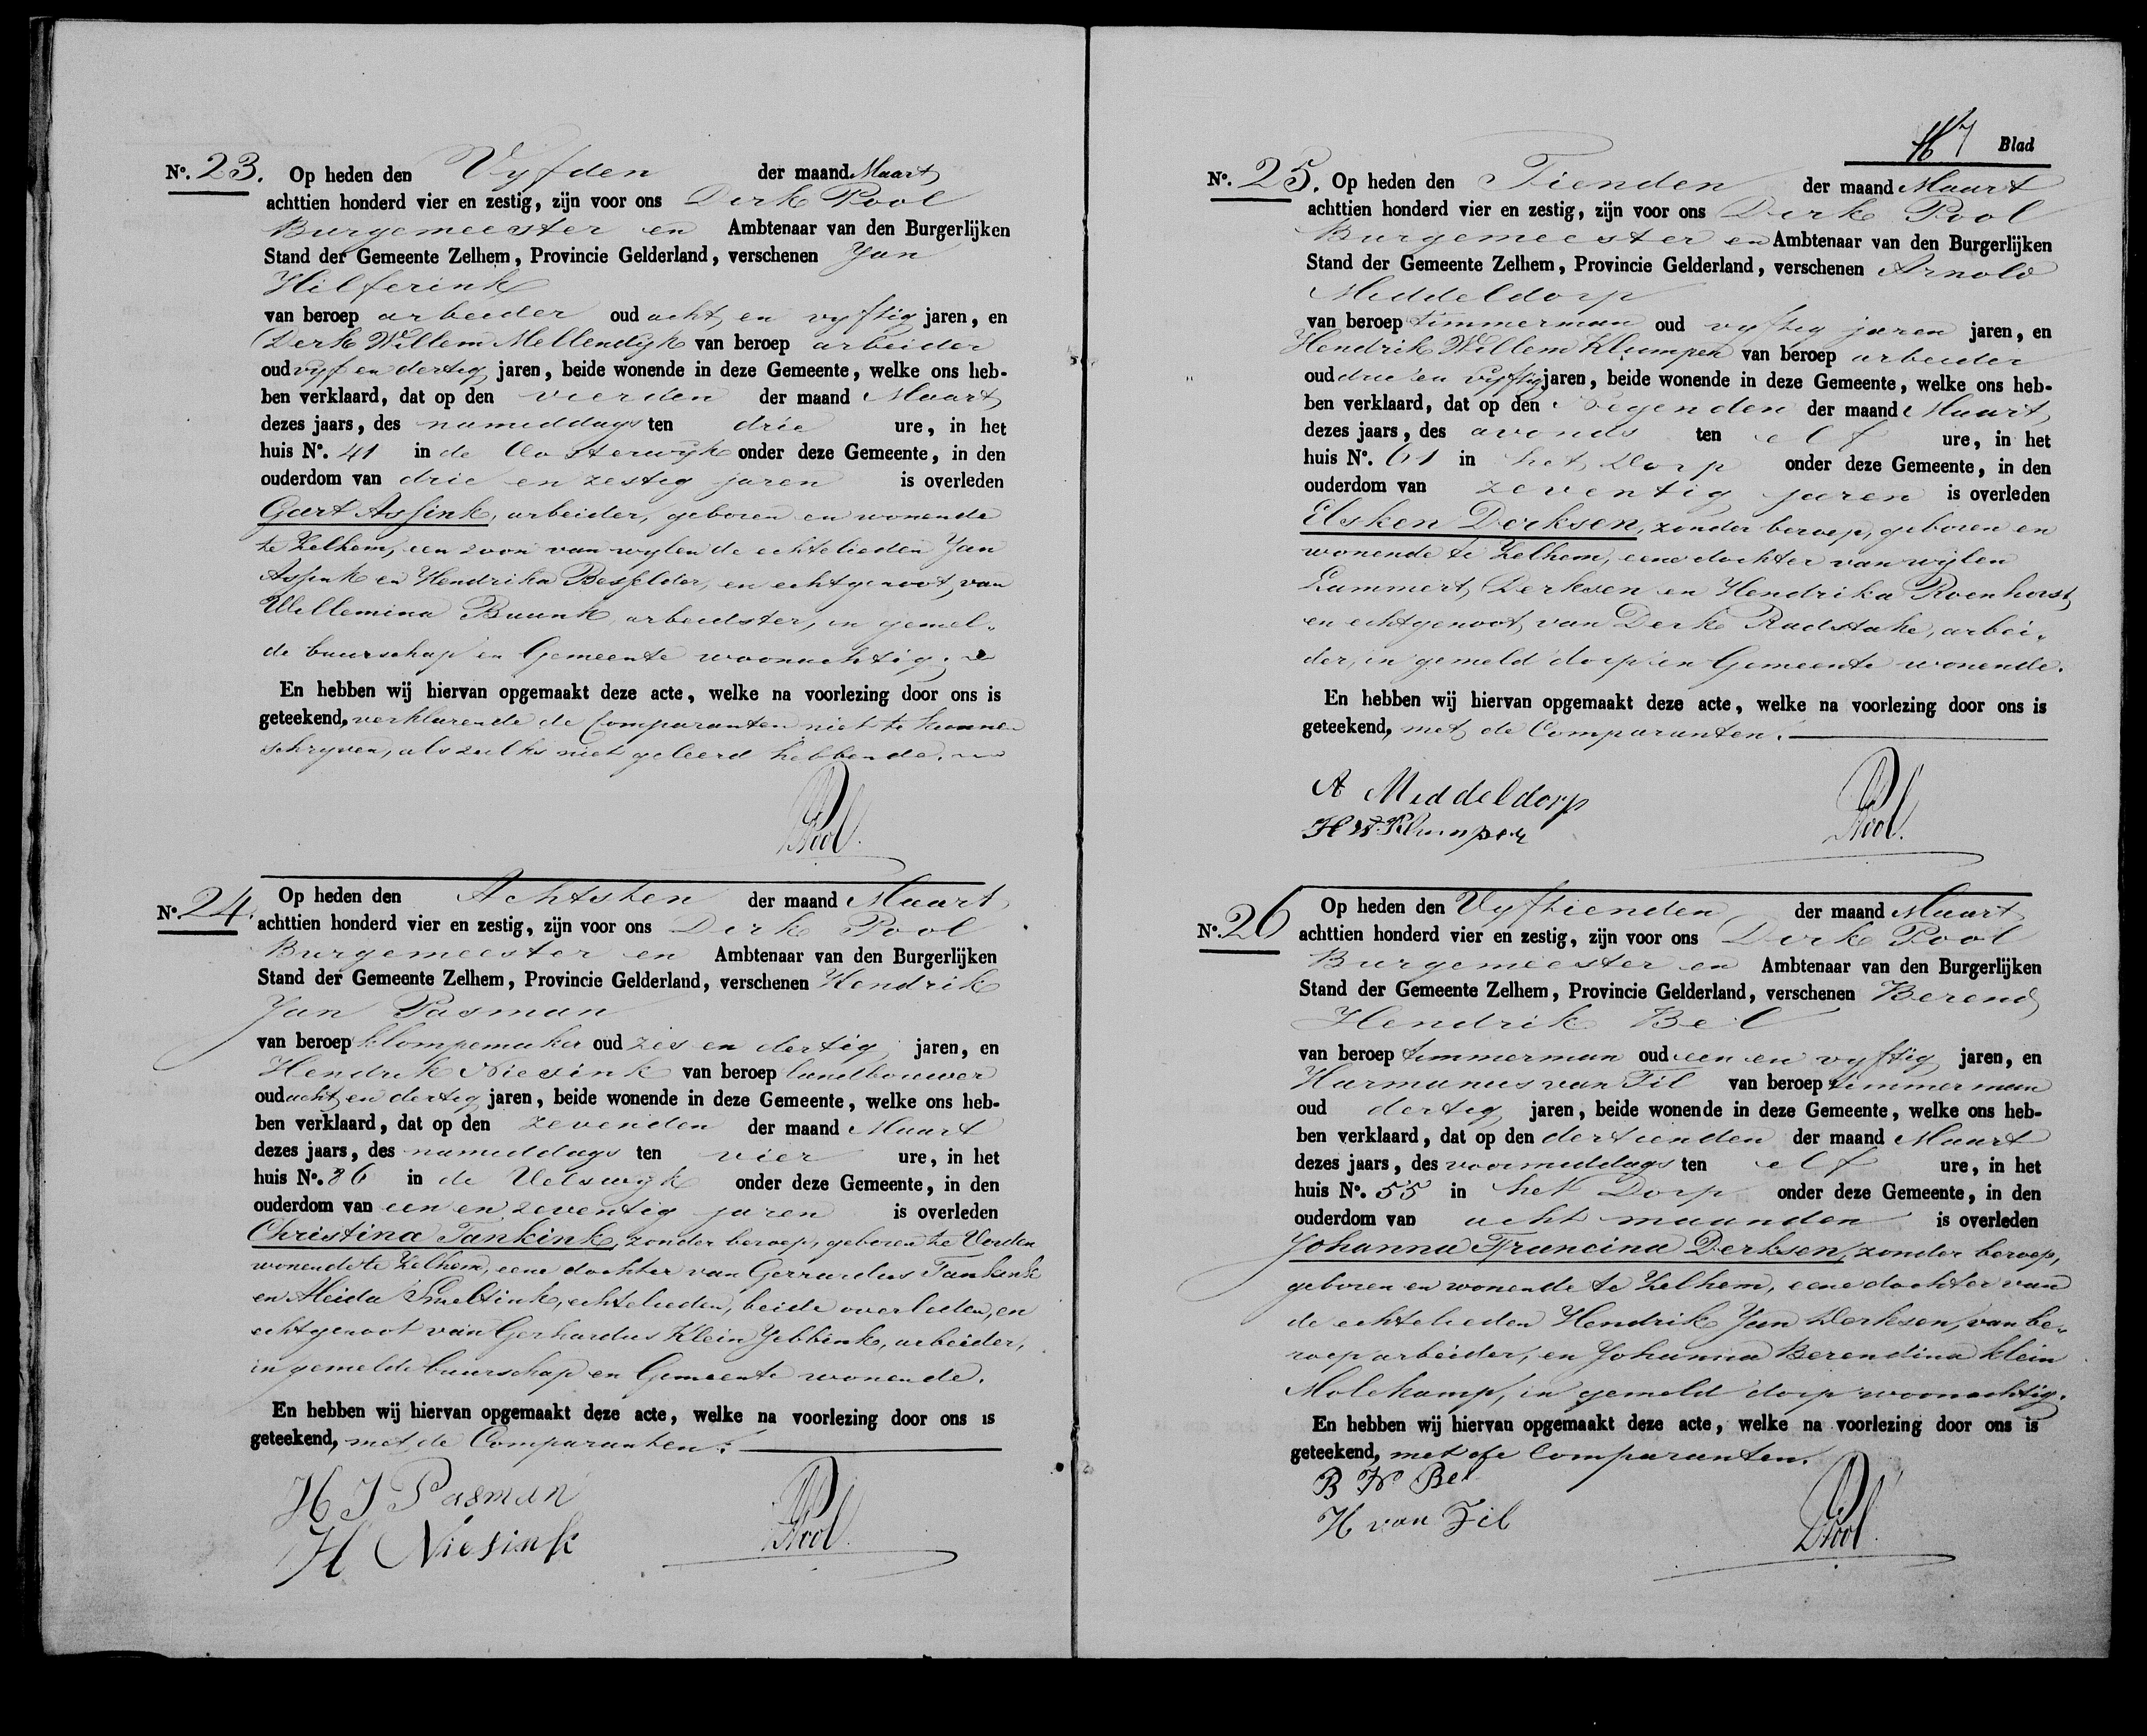 No. 23. Op heden den Vyfden der maand Maart
achttien honderd vier en zestig, zijn voor ons Derk Pool
Burgemeester en Ambtenaar van den Burgerlijken
Stand der Gemeente Zelhem, Provincie Gelderland, verschenen Jan
Hilferink
van beroep arbeider oud acht en vyftig jaren, en
Derk Willem Mellendijk van beroep arbeider
oud vyf en dertig jaren, beide wonende in deze Gemeente, welke ons heb-
ben verklaard, dat op den vierden der maand Maart
dezes jaars, des namiddags ten drie ure, in het
huis No. 41 in de Oosterwijk onder deze Gemeente, in den
ouderdom van drie en zestig jaren is overleden
Gart Assink, arbeider, geboren en wonende
te Zelhem, een zoon van wylen de echtelieden Jan
Assink en Hendrika Besselder, en echtgenoot van
Willemina Buunk, arbeidster, in gemel-
de buurschap en Gemeente woonachtig.
En hebben wij hiervan opgemaakt deze acte, welke na voorlezing door ons is
geteekend, verklarende de Comparanten niet te kunnen
schryven, als zulks niet geleerd hebbende.
Pool.
No. 24. Op heden den Achtsten der maand Maart
achttien honderd vier en zestig, zijn voor ons Derk Pool
Burgemeester en Ambtenaar van den Burgerlijken
Stand der Gemeente Zelhem, Provincie Gelderland, verschenen Hendrik
Jan Pasman
van beroep klompemaker oud zes en dertig jaren, en
Hendrik Niesink van beroep landbouwer
oud acht en dertig jaren, beide wonende in deze Gemeente, welke ons heb-
ben verklaard, dat op den zevenden der maand Maart
dezes jaars, des namiddags ten vier ure, in het
huis No. 36 in de Velswyk onder deze Gemeente, in den
ouderdom van een en zeventig jaren is overleden
Christina Tankink, zonder beroep, geboren te Vorden
wonende te Zelhem, eene dochter van Gerrardus Tankink
en Aleida Smeltink, echtelieden, beide overleden, en
echtgenoot van Gerhardus Klein Jebbink, arbeider,
in gemelde buurschap en Gemeente wonende.
En hebben wij hiervan opgemaakt deze acte, welke na voorlezing door ons is
geteekend, met de Comparanten.
H J Pasman
H Niesink
Pool.
Blad
No. 25. Op heden den Tienden der maand Maart
achttien honderd vier en zestig, zijn voor ons Derk Pool
Burgemeester en Ambtenaar van den Burgerlijken
Stand der Gemeente Zelhem, Provincie Gelderland, verschenen Arnold
Middeldorp
van beroep timmerman oud vyftig jaren jaren, en
Hendrik Willem Klumper van beroep arbeider
oud drie en vyftig jaren, beide wonende in deze Gemeente, welke ons heb-
ben verklaard, dat op den Negenden der maand Maart
dezes jaars, des avonds ten elf ure, in het
huis No. 61 in het Dorp onder deze Gemeente, in den
ouderdom van zeventig jaren is overleden
Elsken Derksen, zonder beroep, geboren en
wonende te Zelhem, eene dochter van wijlen
Lammert Derksen en Hendrika Roenhorst
en echtgenoot van Derk Radstake, arbei-
der, in gemeld dorp en Gemeente wonende.
En hebben wij hiervan opgemaakt deze acte, welke na voorlezing door ons is
geteekend, met de Comparanten.
A Middeldorp
H W. Klumper
Pool.
No. 26 Op heden den Vyftienden der maand Maart
achttien honderd vier en zestig, zijn voor ons Derk Pool
Burgemeester en Ambtenaar van den Burgerlijken
Stand der Gemeente Zelhem, Provincie Gelderland, verschenen Berend
Hendrik Bel
van beroep timmerman oud een en vyftig jaren, en
Harmanus van Til van beroep timmerman
oud dertig jaren, beide wonende in deze Gemeente, welke ons heb-
ben verklaard, dat op den dertienden der maand Maart
dezes jaars, des voormiddags ten elf ure, in het
huis No. 55 in het Dorp onder deze Gemeente, in den
ouderdom van acht maanden is overleden
Johanna Francina Derksen, zonder beroep,
geboren en wonende te Zelhem, eene dochter van
de echtelieden Hendrik Jan Derksen, van be-
roep arbeider, en Johanna Berendina Klein
Molekamp, in gemeld dorp woonachtig.
En hebben wij hiervan opgemaakt deze acte, welke na voorlezing door ons is
geteekend, met de Comparanten.
B H Bel
H van Til
Pool